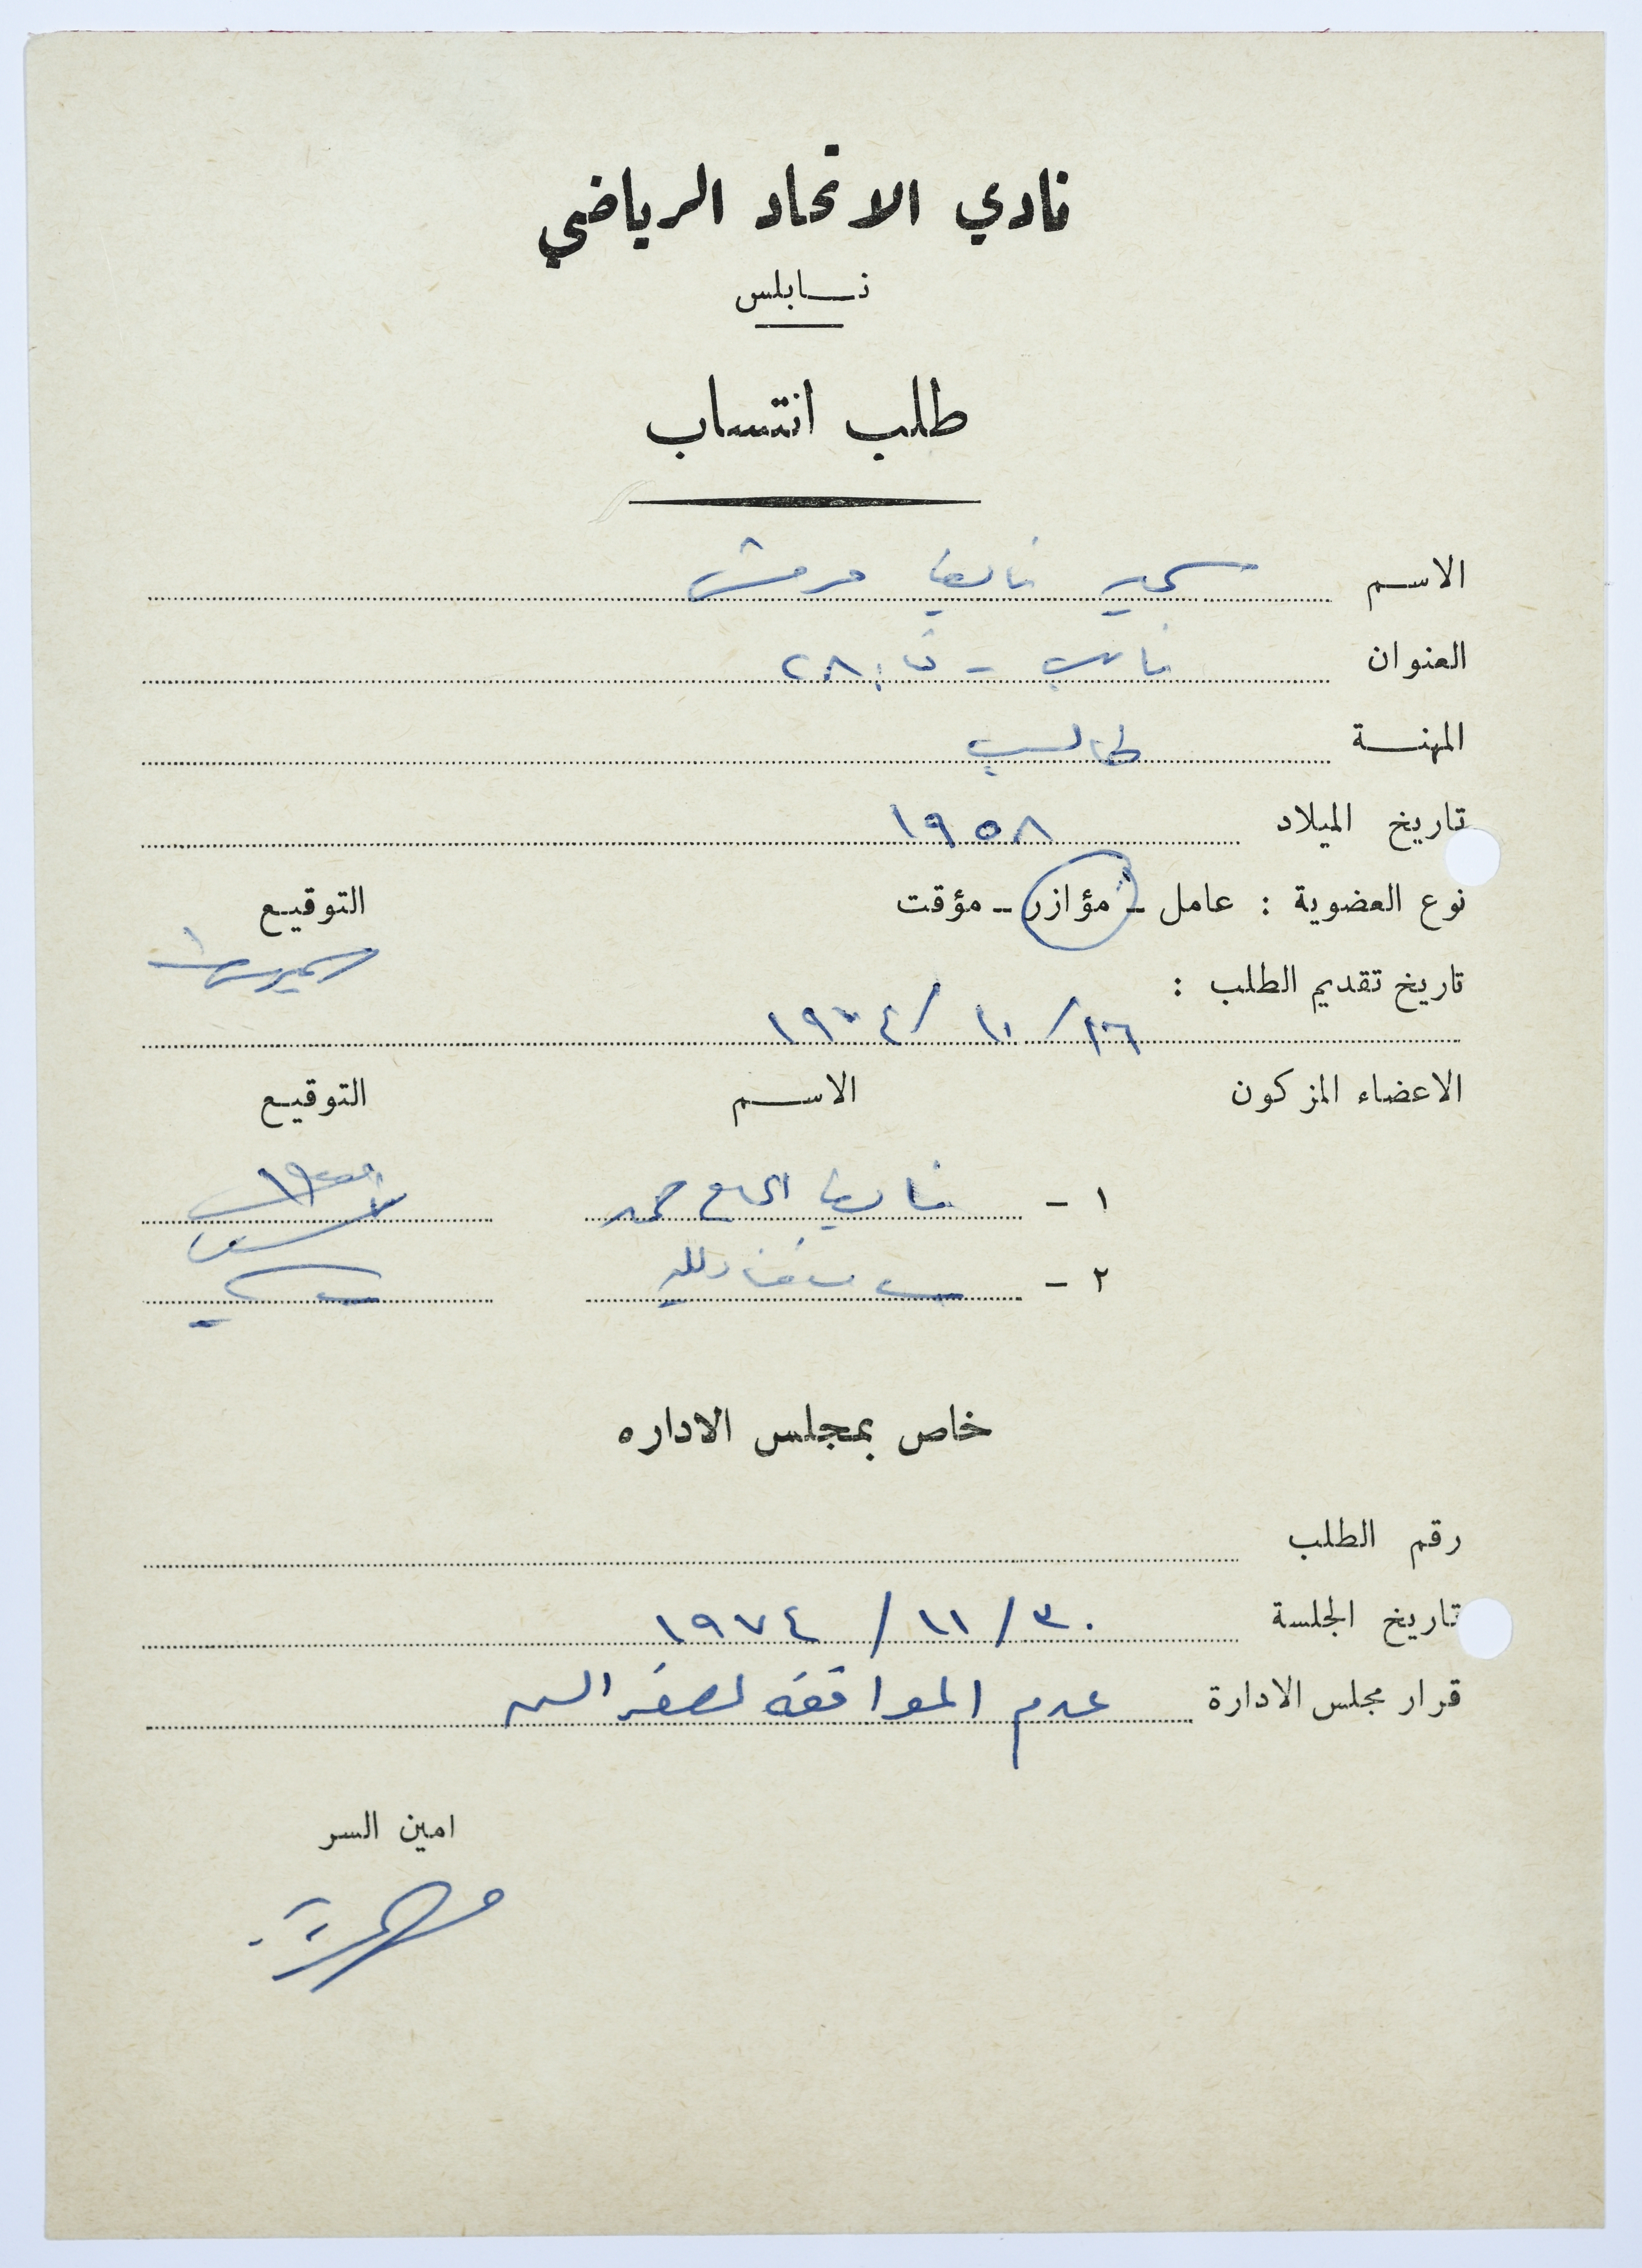 نادي الاتحاد الرياضي
نابلس
طلب انتساب
الاسم سمير نايف مرمش
العنوان نابلس -
المهنة طالب
تاريخ الميلاد ١٩٥٨
نوع العضوية : عامل - مؤازر - مؤقت التوقيع
تاريخ تقديم الطلب :
٢٦ / ١٠ / ١٩٧٤
الاعضاء المزكون الاسم التوقيع
١ - نايف الحاج حمد
٢ -
خاص بمجلس الاداره
رقم الطلب
تاريخ الجلسة ٣٠ / ١١ / ١٩٧٤
قرار مجلس الادارة عدم الموافقه لصغر السن
امين السر